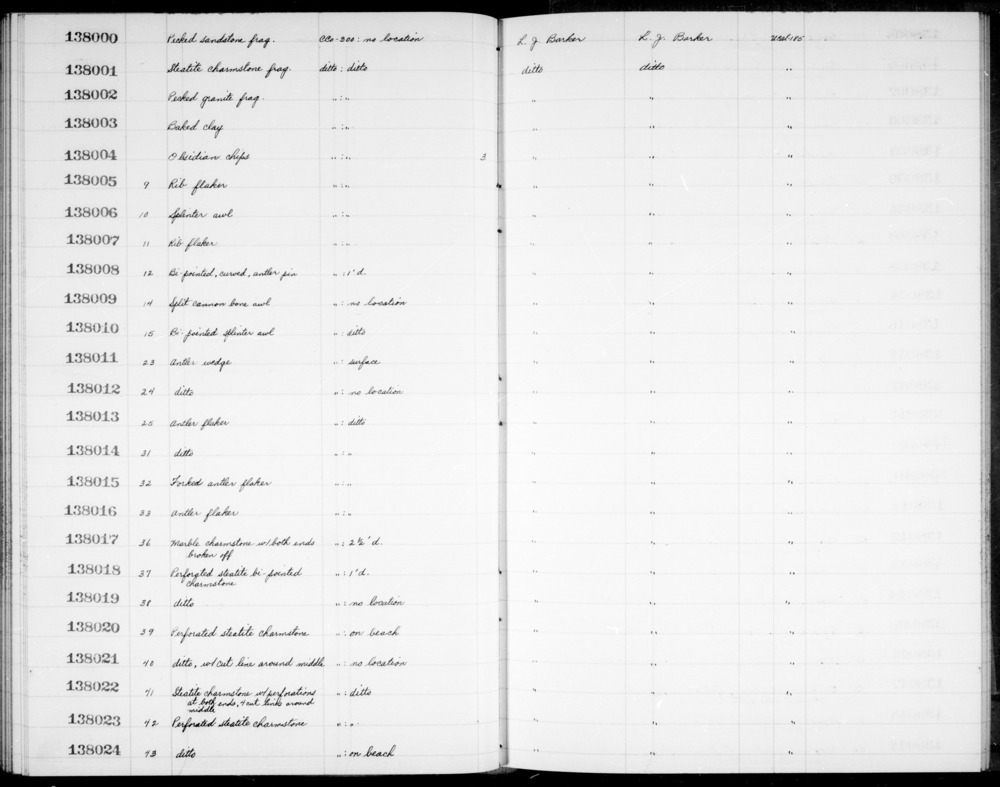 138000 Pecked sandstone frag. CCo-300: no location L. J. Barker L. J. Barker
138001 Steatite charmstone frag. ditto: ditto ditto ditto "
138002 Pecked granite frag. ": " " " "
138003 Baked clay ": " " " "
138004 Obsidian chips ": " 3 " " "
138005 9 Rib flaker ": " " " "
138006 10 Splinter awl ": " " " "
138007 11 Rib flaker ": " " " "
138008 12 Bi-pointed, curved, antler pin ": 1' d. " " "
138009 14 Split cannon bone awl ": no location " " "
138010 15 Bi-pointed splinter awl ": ditto " " "
138011 23 Antler wedge ": surface " " "
138012 24 ditto ": no location " " "
138013 25 Antler flaker ": ditto " " "
138014 31 ditto ": " " " "
138015 32 Forked antler flaker ": " " " "
138016 33 Antler flaker ": " " " "
138017 36 Marble charmstone w/ both ends ": 2 ½' d. " " "
broken off
138018 37 Perforated steatite bi-pointed ": 1' d. " " "
charmstone
138019 38 ditto ": no location " " "
138020 39 Perforated steatite charmstone ": on beach " " "
138021 40 ditto, w/ cut line around middle ": no location " " "
138022 41 Steatite charmstone w/ perforations ": ditto " " "
at both ends, 4 cut lines around
middle
138023 42 Perforated steatite charmstone ": " " " "
138024 43 ditto ": on beach " " "